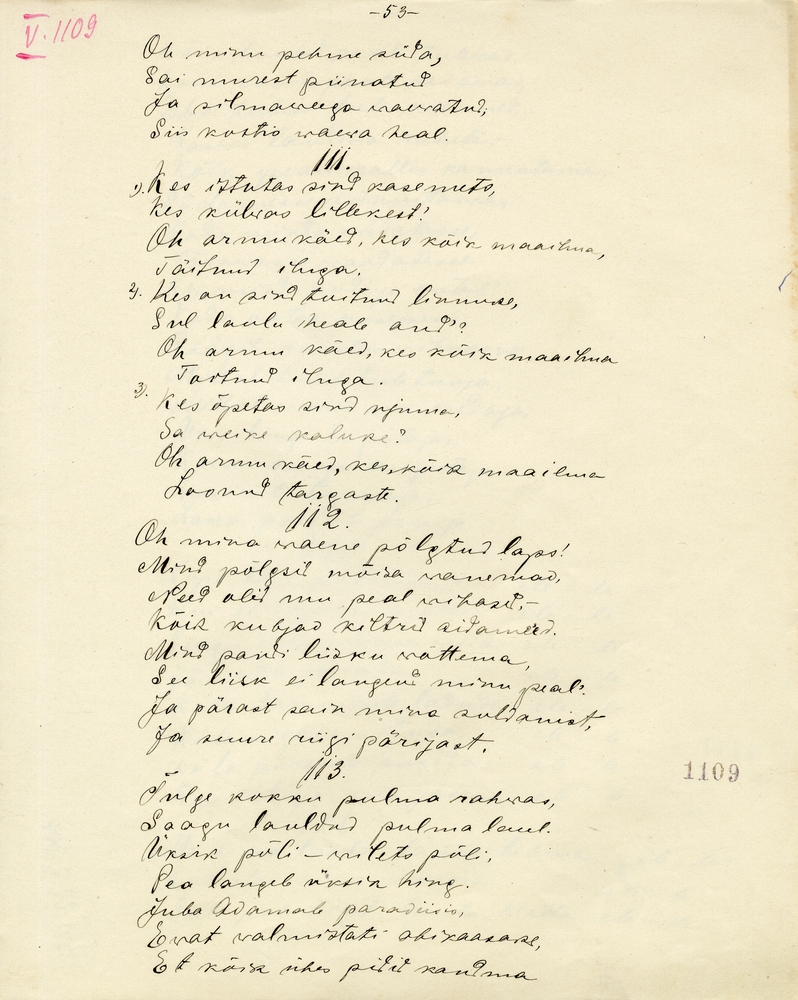 -53-
V. 1109
Oh minu pehme süda,
Sai murest piinatud
Ja silmaweega waewatud,
Siis kostis waewa heal.
111.
1). Kes istutas sind kasemets,
Kes külwas lillekest?
Oh armu käed, kes kõik maailma,
Täitnud iluga.
2). Kes on sind toitnud linnuke,
Sul laulu heale and?
Oh armu käed, kes kõik maailma
Toitnud iluga.
3). Kes õpetas sind ujuma,
Sa weike kaluke?
Oh armu käed, kes kõik maailma
Loonud targaste.
112.
Oh mina waene põlgtud laps!
Mind põlgsid mõisa wanemad,
Need olid mu peal wihased,-
Kõik kubjad kiltrid aidamed.
Mind pandi liisku wõttema,
See liisk ei langend minu peal.
Ja pärast sain mina soldanist,
Ja suure riigi pärijast.
113.
Tulge kokku pulma rahwas,
Saagu lauldud pulma laul.
Üksik põli - wilets põli,
Pea langeb üksik hing.
Juba Adamale paradiisis,
Ewat walmistati abikaasake,
Et kõik ühes pidid kandma
1109